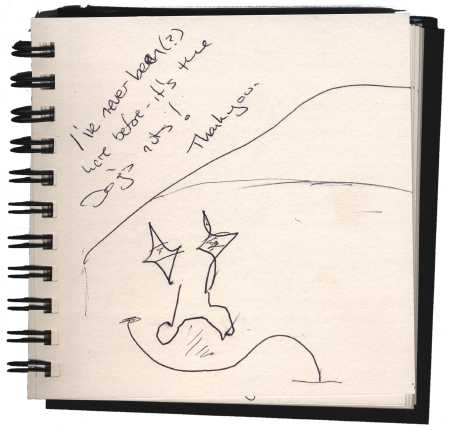 I've never been(?)
here before - it's the
Dog's nuts!
Thankyou.